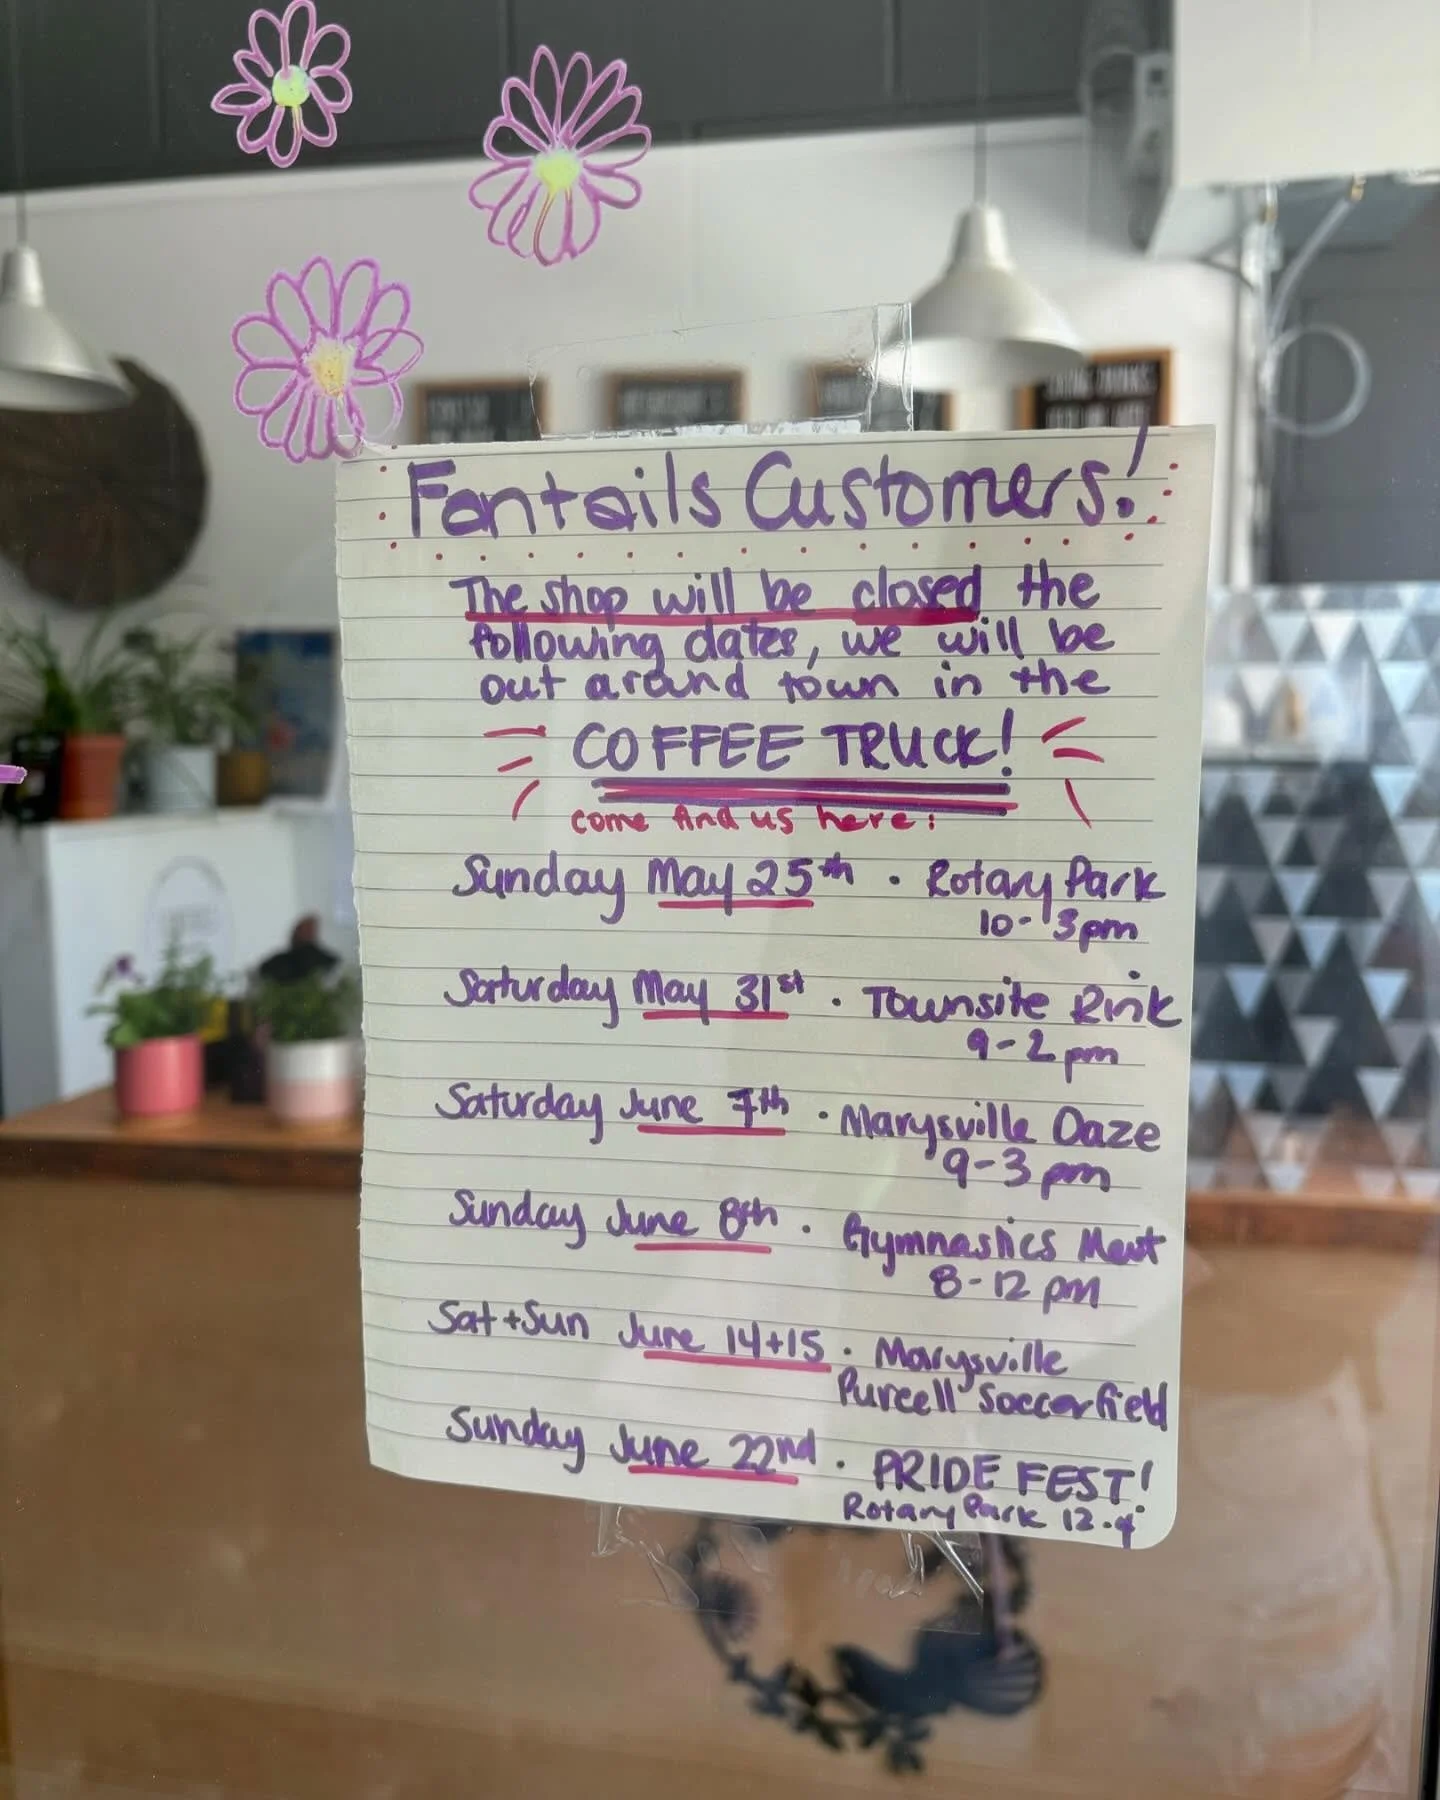 Fantails Customers!
The shop will be closed the
following dates, we will be
out around town in the
COFFEE TRUCK!
come find us here:
Sunday May 25th · Rotary Park
10-3pm
Saturday May 31st · Townsite Rink
9-2pm
Saturday June 7th · Marysville Daze
9-3pm
Sunday June 8th · Gymnastics Meet
8-12pm
Sat+Sun June 14+15 · Marysville
Purcell Soccerfield
Sunday June 22nd · PRIDE FEST!
Rotary Park 12-4